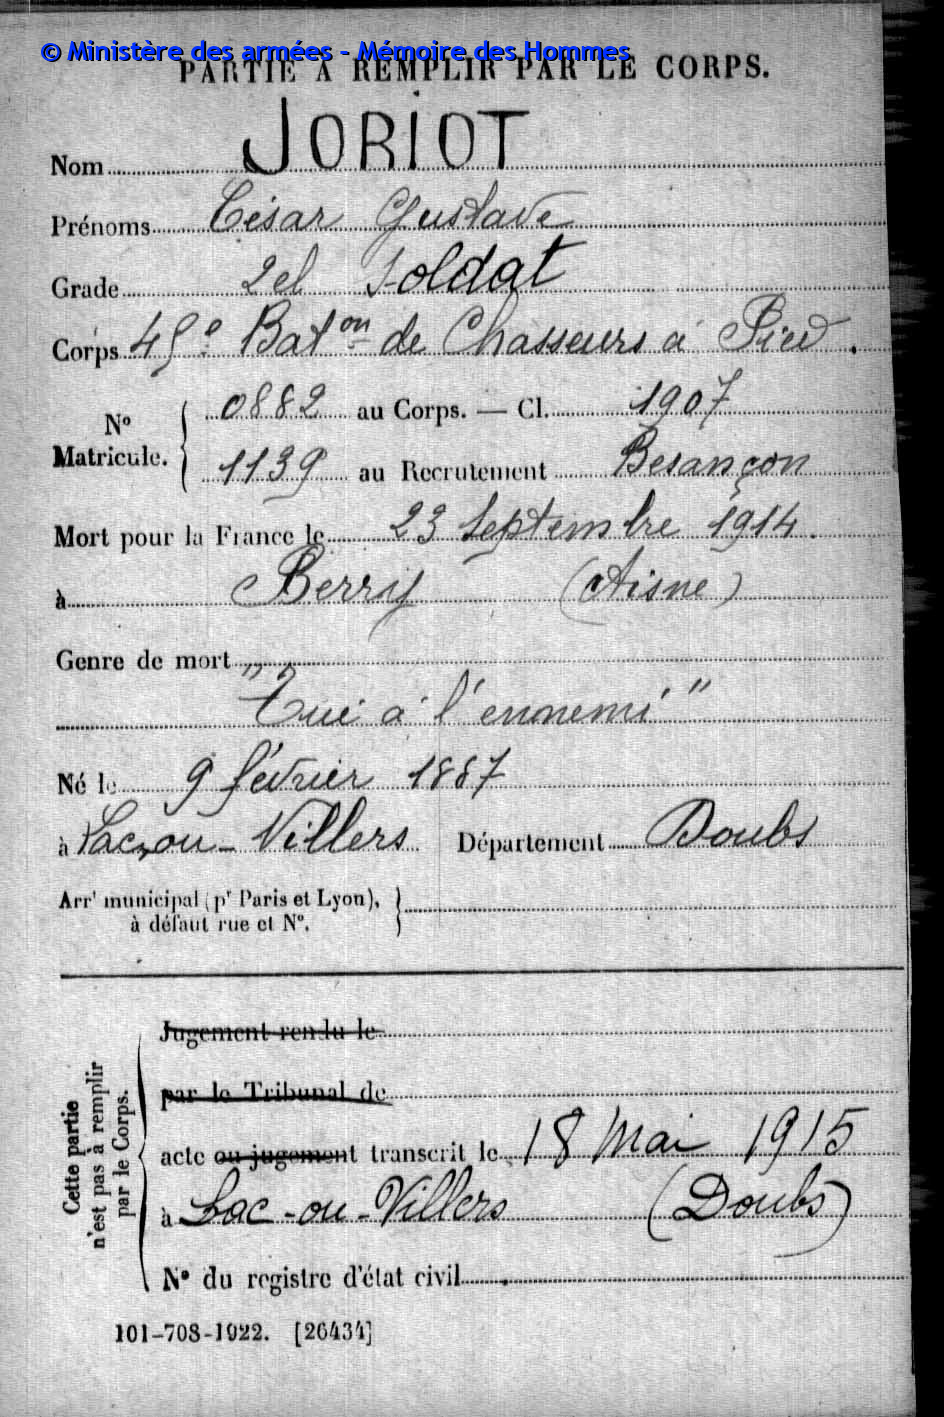 © Ministère des armées - Mémoire des Hommes
PARTIE A REMPLIR PAR LE CORPS.
Nom JORIOT
Prénoms César Gustave
Grade 2e cl Soldat
Corps 45e Baton de Chasseurs à Pied.
No Matricule. 0882 au Corps. — Cl. 1907
1139 au Recrutement Besançon
Mort pour la France le 23 Septembre 1914.
à Berry (Aisne)
Genre de mort
"Tué à l'ennemi"
Né le 9 février 1887
à Lac-ou-Villers Département Doubs
Arrt municipal (pr Paris et Lyon),
à défaut rue et N°.
Cette partie
n'est pas à remplir
par le Corps.
Jugement rendu le
par le Tribunal de
acte ou jugement transcrit le 18 Mai 1915
à Lac-ou-Villers (Doubs)
N° du registre d'état civil
101-708-1922. [26434]